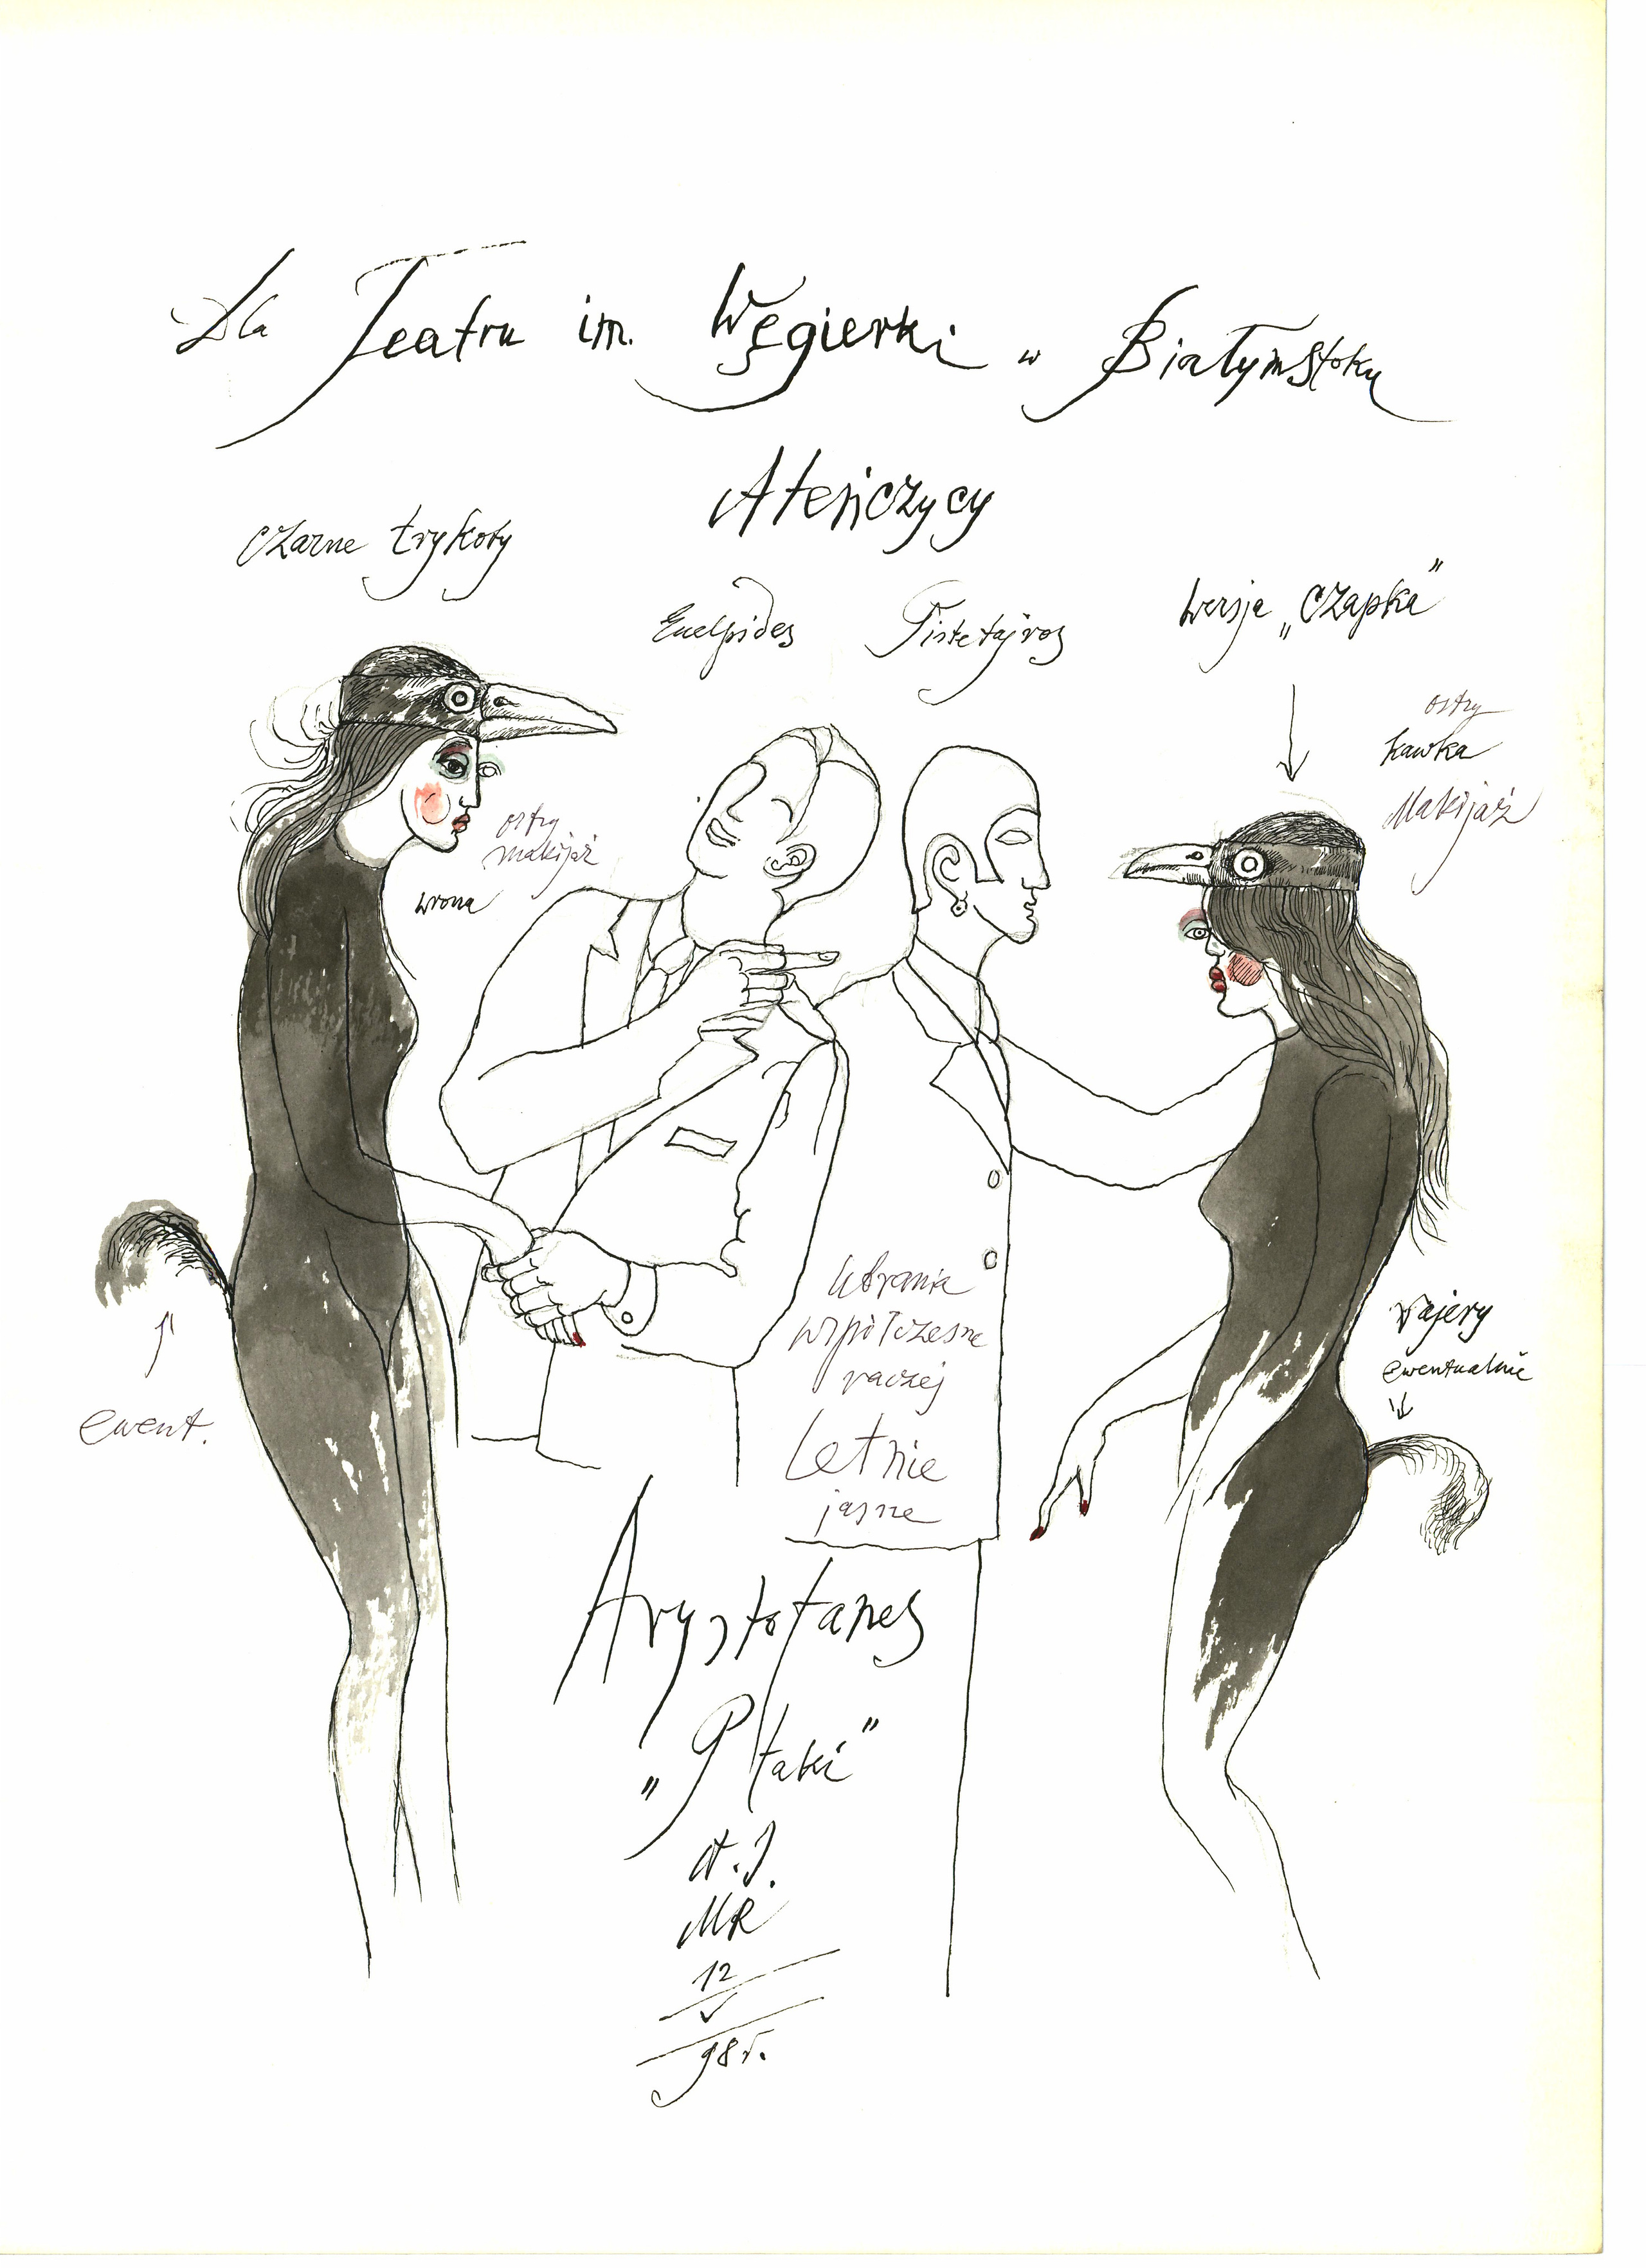 Dla Teatru im. Węgierki w Białymstoku
Ateńczycy
czarne trykoty
Euelpides
Pistetajros
wersja „czapka”
ostry
kawka
Makijaż
ostry
makijaż
wrona
ewent.
ubrania
współczesne
raczej
Letnie
jasne
ewentualnie
Arystofanes
„Ptaki”
MR
12
V
98r.